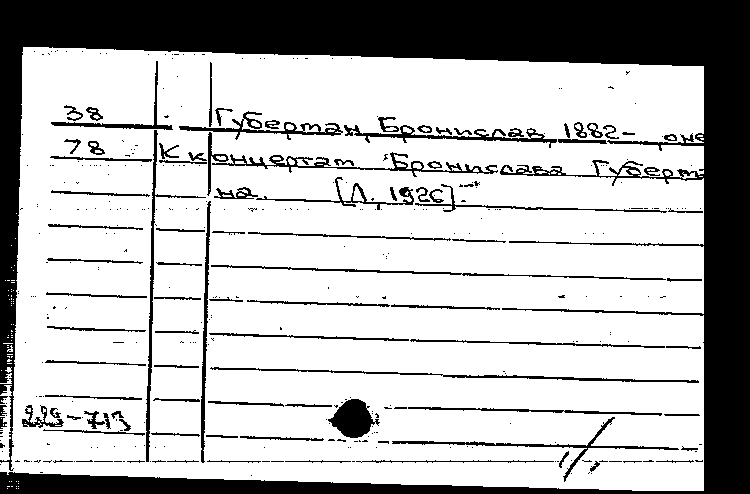 38 Губертан, Бронислав, 1882- , оне
78 К концертам Бронислава Губерта
на. [Л., 1926].
229-713